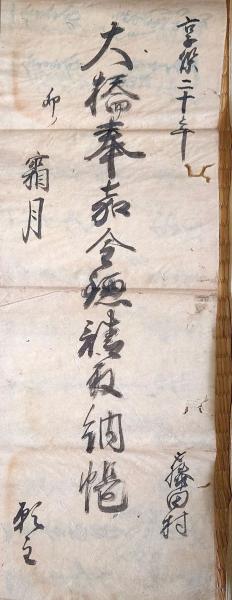 享保二十年
藤田村
大橋奉加請取納帳
卯ノ
霜月
願主